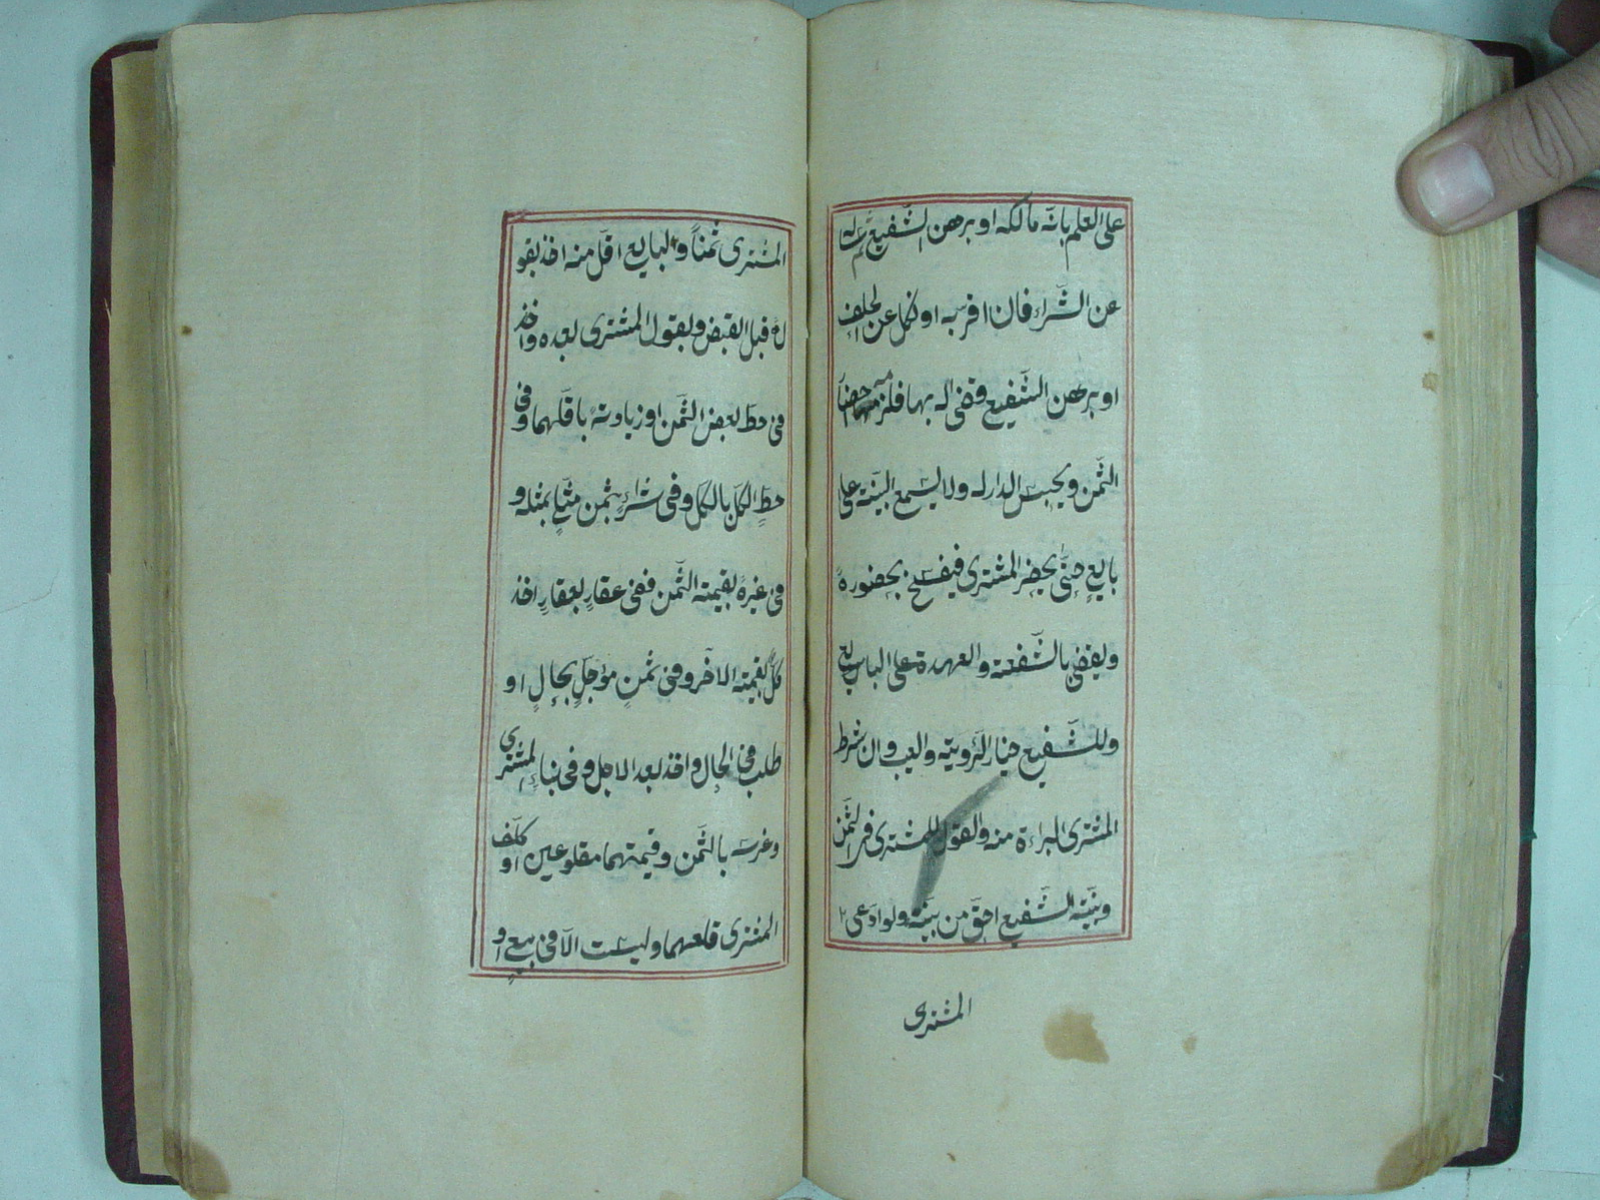 على العلم بانه مالكه او برهن الشفيع سأله
عن الشراء فان اقر به او نكل عن الحلف
او برهن الشفيع قضى له بها فلزمه احضار
الثمن ويحبس الدار له ولا يسمع البينة على
بايع حتى يحضر المشترى فيفسخ بحضوره
ويقضى بالشفعة والعهدة على البايع
وللشفيع خيار الرؤية والعيب وان شرط
المشترى البراءة منه والقول للمشترى فى الثمن
وبينة الشفيع احق من بينته ولو ادعى
المشترى
المشترى ثمنا والبايع اقل منه اخذ بقو
له قبل القبض وبقول المشترى بعده واخذ
فى حط بعض الثمن او زيادته باقلهما وفى
حط الكل بالكل وفى شراء بثمن مثلى بمثله و
فى غيره بقيمته الثمن ففى عقار بعقار اخذ
كل بقيمته الاخر وفى ثمن مؤجل بحال او
طلب فى الحال واخذ بعد الاجل وفى بناء المشترى
وغرسه بالثمن وقيمتهما مقلوعين او كلف
المشترى قلعهما وليست الا فى بيع او